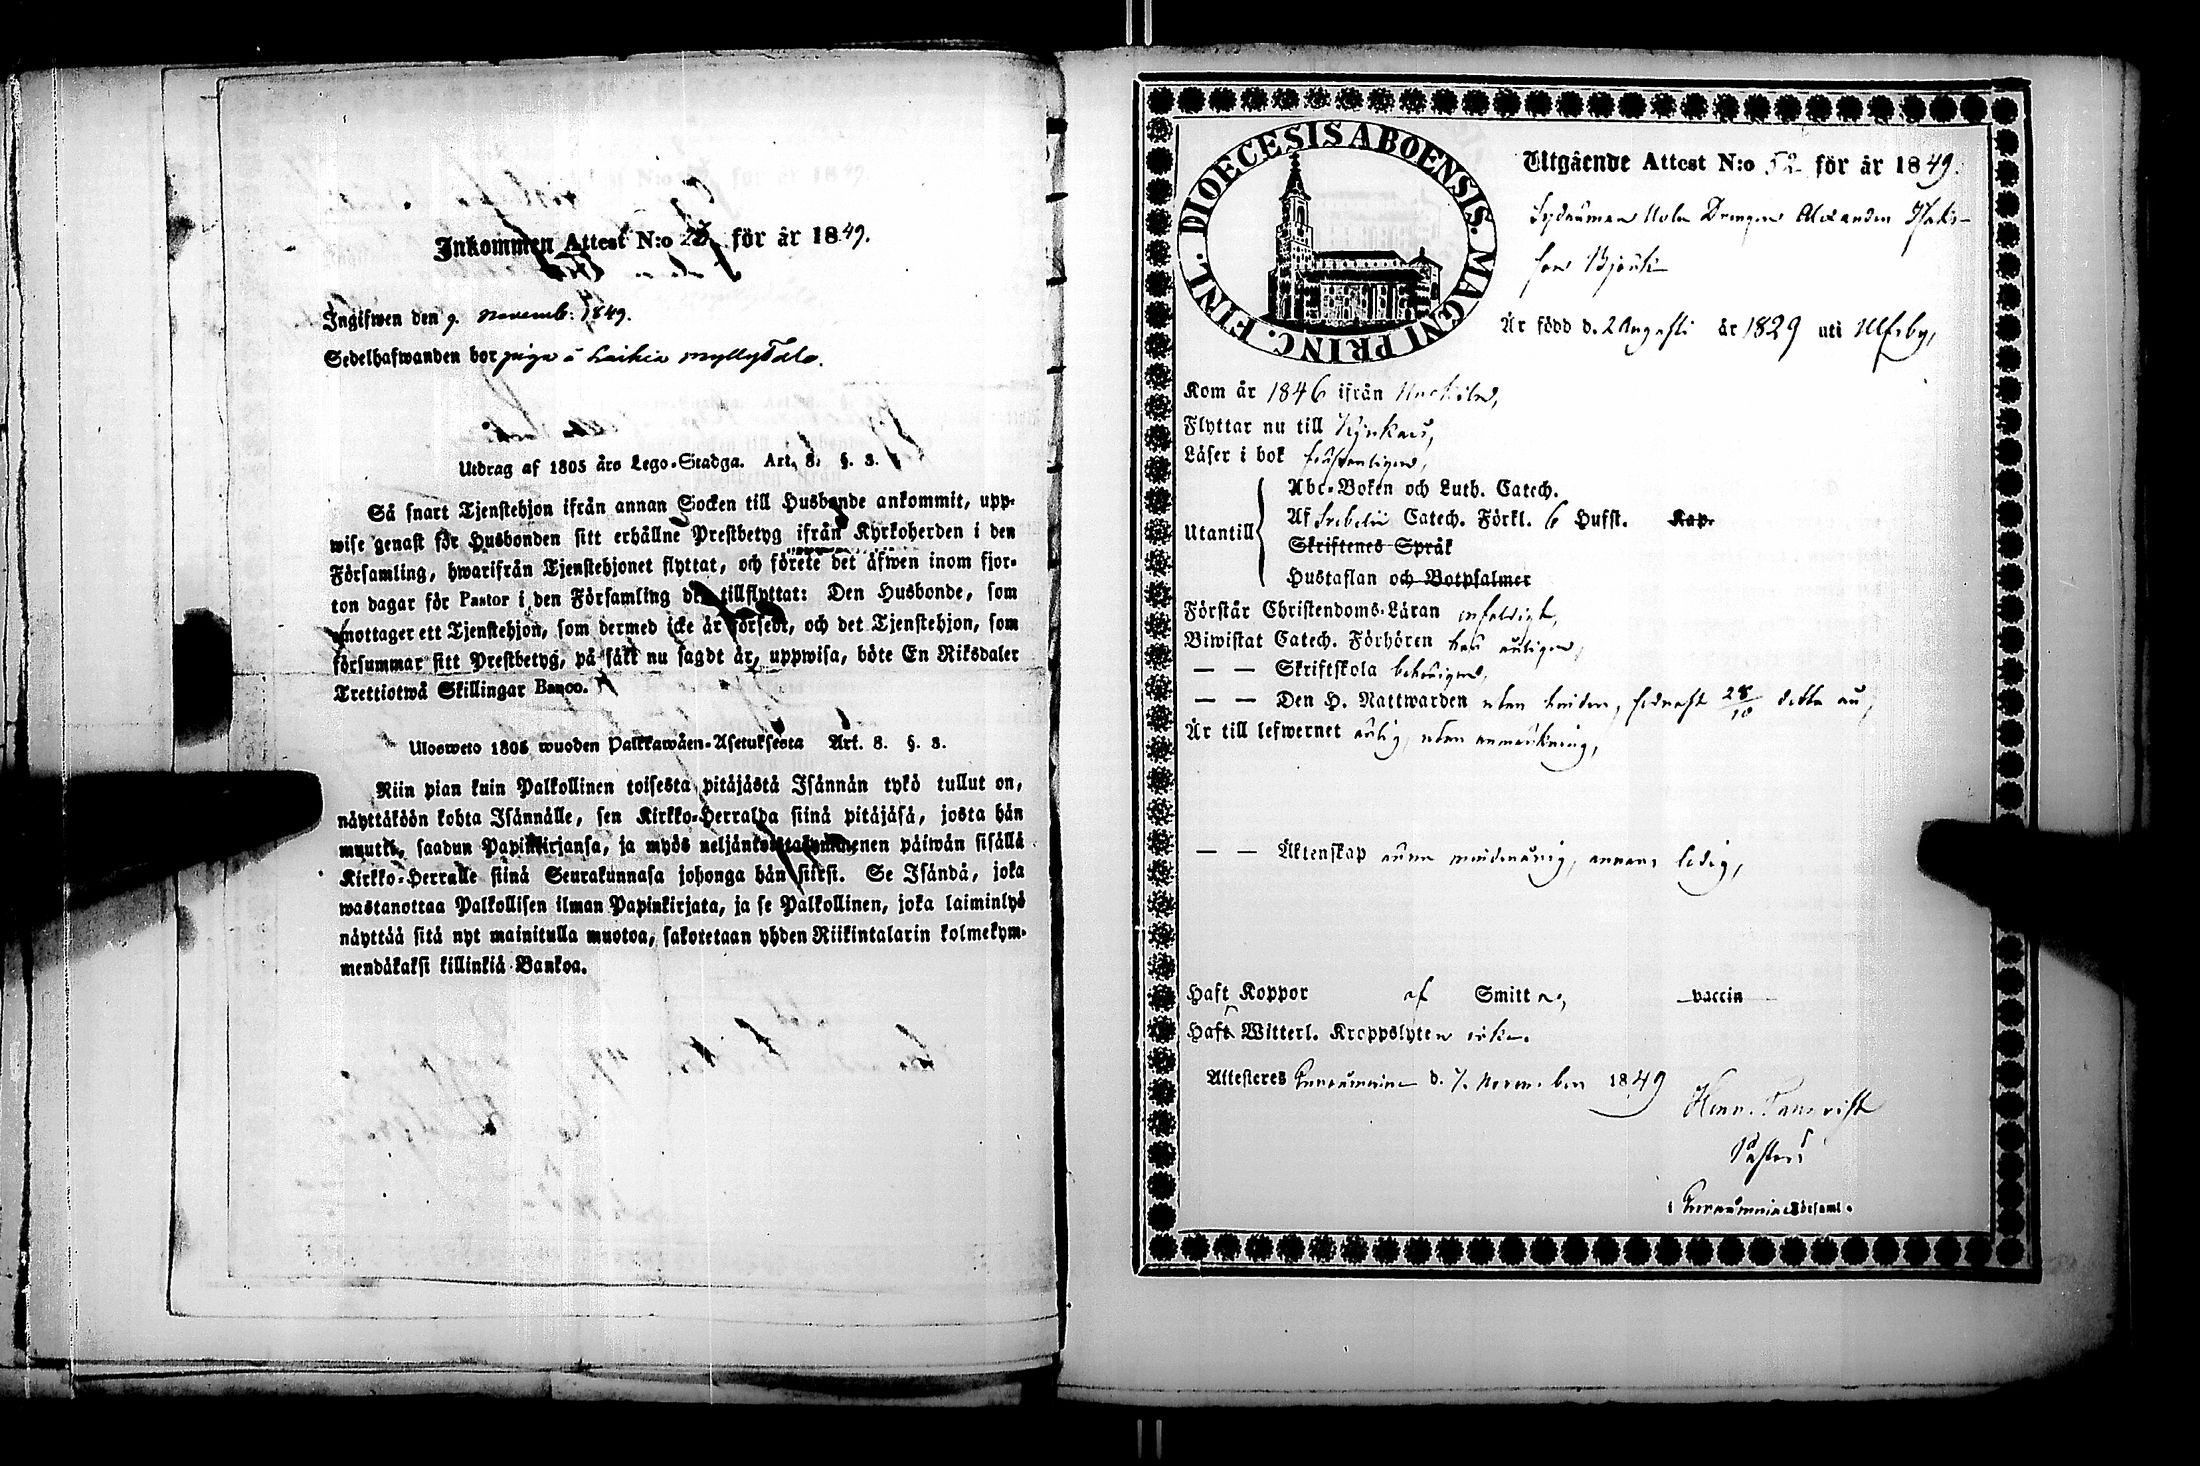 Inkommen Attest N:o för år 1849.
Ingifwen den 9. novemb: 1849.
Sedelhafwanden bor piga å Laihia myllytalo.
Utdrag af 1805 års Lego-Stadga. Art. 8. §. 3.
Så snart Tjenstehjon ifrån annan Socken till Husbonde ankommit, upp-
wise genast för Husbonden sitt erhållne Prestbetyg ifrån Kyrkoherden i den
Församling, hwarifrån Tjenstehjonet flyttat, och förete det äfwen inom fjor-
ton dagar för Pastor i den Församling det tillflyttat: Den Husbonde, som
emottager ett Tjenstehjon, som dermed icke är försedt, och det Tjenstehjon, som
försummar sitt Prestbetyg, på sätt nu sagdt är, uppwisa, böte En Riksdaler
Trettiotwå Skillingar Banco.
Ulosweto 1805 wuoden Palkkawäen-Asetuksesta Art. 8. §. 3.
Niin pian kuin Palkollinen toisesta pitäjästä Isännän tykö tullut on,
näyttäköön kohta Isännälle, sen Kirkko-Herralda siinä pitäjäsä, josta hän
muutti, saadun Papinkirjansa, ja myös neljäntoistakymmenen päiwän sisällä
Kirkko-Herralle siinä Seurakunnasa johonga hän siirsi. Se Isändä, joka
wastanottaa Palkollisen ilman Papinkirjata, ja se Palkollinen, joka laiminlyö
näyttää sitä nyt mainitulla muotoa, sakotetaan yhden Riikintalarin kolmekym-
mendäkaksi killinkiä Bankoa.
DIOECESIS ABOENSIS. MAGNI PRINC. FINL.
Utgående Attest N:o 52 för år 1849.
Drengen Alexander Isaks-
son Björki
Är född d. 2 Augusti år 1829 uti Ulfsby,
Kom år 1846 ifrån
Flyttar nu till Kjukais,
Läser i bok
Abc-Boken och Luth. Catech.
Utantill
Af Svebelii Catech. Förkl. 6 Hufst. Kap.
Skriftenes Språk
Hustaflan och Botpsalmer
Förstår Christendoms-Läran enfaldigt,
Biwistat Catech. Förhören
— — Skriftskola behörigen,
— — Den H. Nattwarden utan hinder, sednast 28/10 detta år,
Är till lefwernet ärlig, utan anmärkning,
— — Äktenskap minderårig, annars ledig,
Haft Koppor af Smitta, vaccin
Haft Witterl. Kroppslyten icke.
Attesteres d. 7. November 1849
Henr.
Pastor
i Församl.